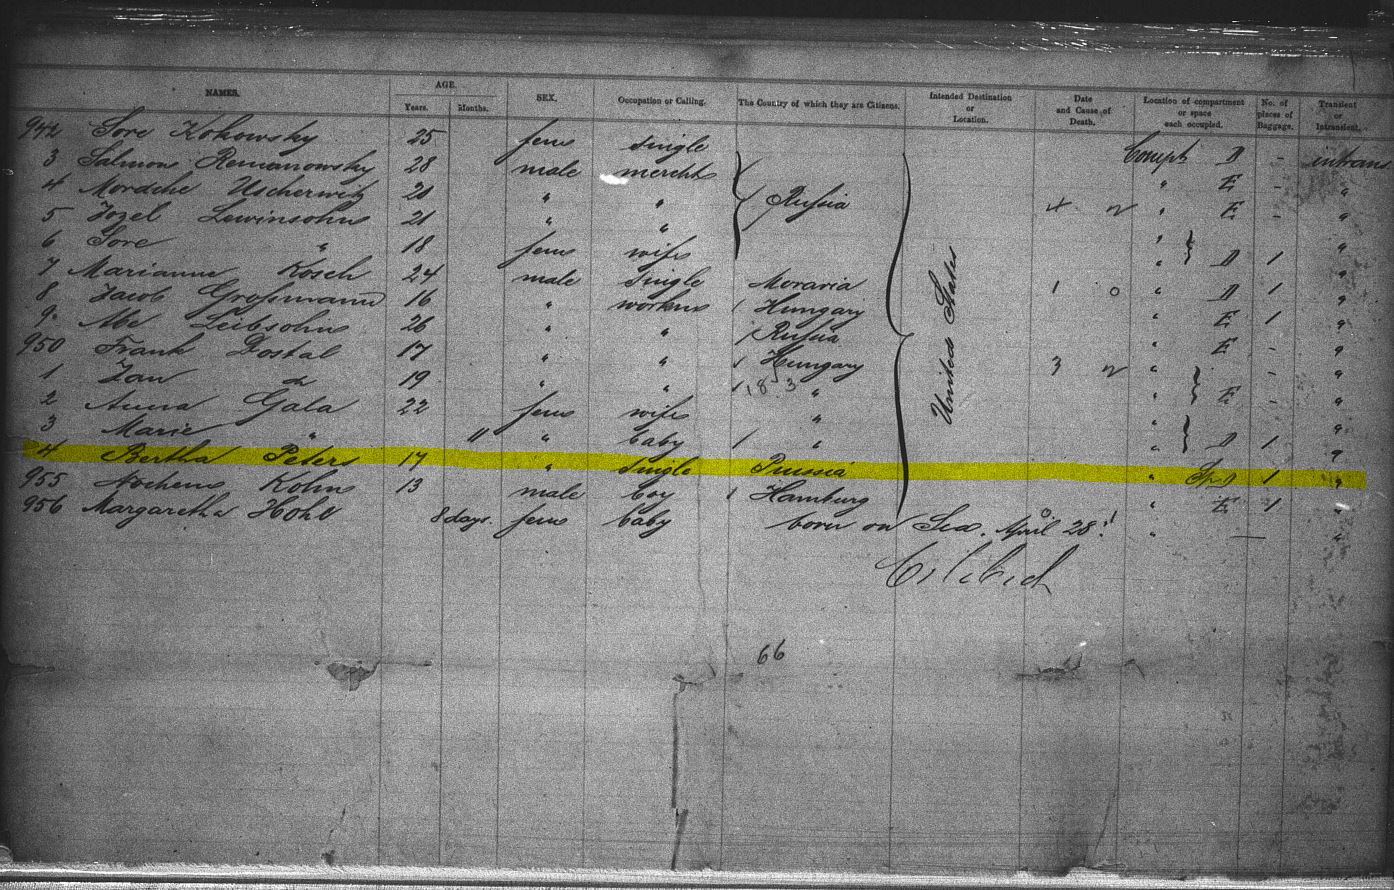 NAMES. AGE. SEX. Occupation or Calling. The Country of which they are Citizens. Intended Destination or Location. Date and Cause of Death. Location of compartment or space each occupied. No. of pieces of Baggage. Transient or Intransient.
Years. Months.
942 Sore Kokowsky 25 fem single Compt D - intrans
3 Salmon Remanowsky 28 male mercht " E - "
4 Mordche Uscherwitz 20 " " Russia " E - "
5 Jozel Lewinsohn 21 " " "
6 Sore " 18 fem wife " D 1 "
7 Marianne Kosch 24 male single Moravia " D 1 "
8 Jacob Großmann 16 " workm Hungary United States " E 1 "
9 Abe Leibsohn 26 " " Russia " E - "
950 Frank Dostal 17 " " Hungary " - "
1 Jan do 19 " " " E - "
2 Anna Gala 22 fem wife " "
3 Marie " 11 " baby " " D 1 "
4 Bertha Peters 17 " single Prussia " D 1 "
955 Nochem Kohn 13 male boy Hamburg " E 1
956 Margaretha Hohl 8 days. fem baby born on Sea. April 28! " — "
66